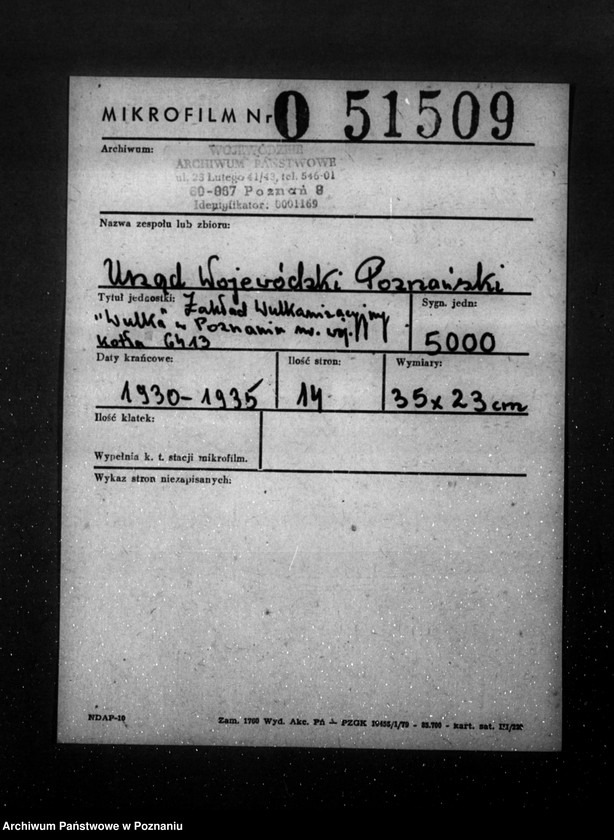 MIKROFILM Nr 0 51509
Archiwum:
WOJEWÓDZKIE
ARCHIWUM PAŃSTWOWE
ul. 23 Lutego 41/43, tel. 546-01
60-967 Poznań 9
Identyfikator: 0001169
Nazwa zespołu lub zbioru:
Urząd Wojewódzki Poznański
Tytuł jednostki: Zakład Wulkanizacyjny
"Wulka" w Poznaniu nr. wyj.
kotła 6413
Sygn. jedn:
5000
Daty krańcowe:
1930-1935
Ilość stron:
14
Wymiary:
35x23cm
Ilość klatek:
Wypełnia k. t. stacji mikrofilm.
Wykaz stron niezapisanych:
NDAP-10
Zam. 1700 Wyd. Akc. Pń - PZGK
Archiwum Państwowe w Poznaniu